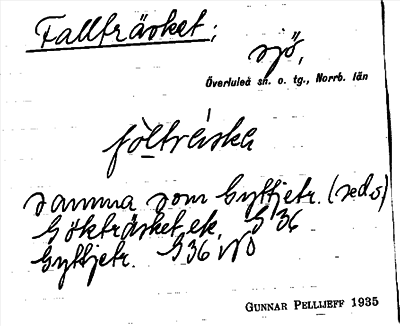 Fallträsket;
sjö,
Överluleå sn. o. tg., Norrb. län
fòltrḗiska
samma som Gyttjetr. (sed.s)
Gökträsket ek. G 36
Gyttjetr. G 36 NO
GUNNAR PELLIJEFF 1935